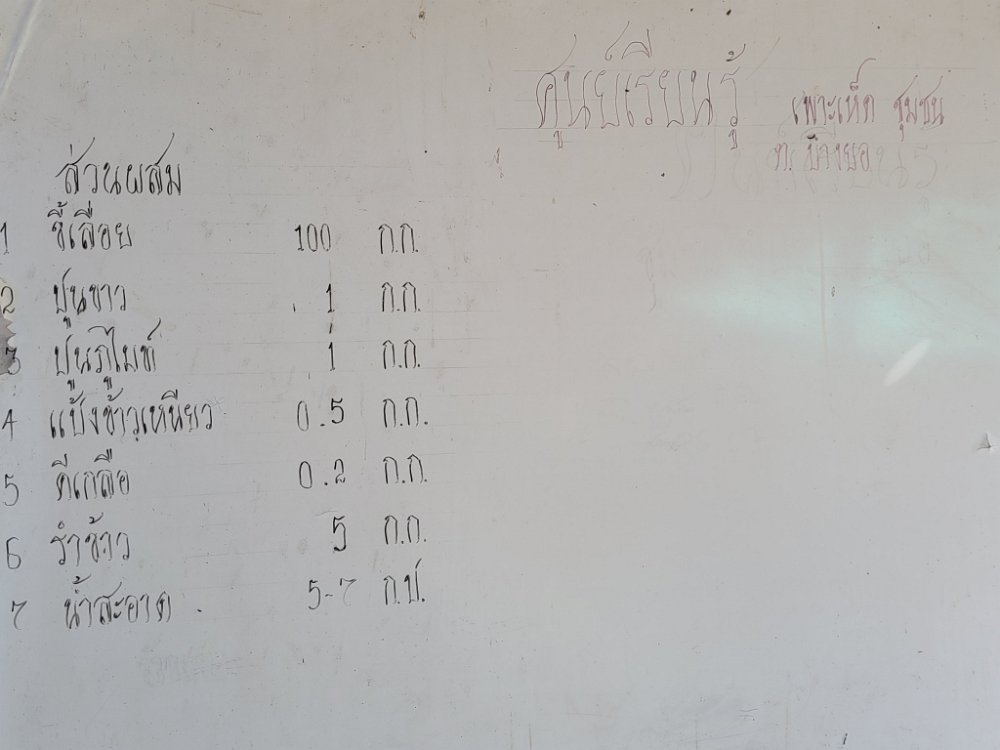 ศูนย์เรียนรู้ เพาะเห็ด ชุมชน
ต.
ส่วนผสม
1 ขี้เลื่อย 100 ก.ก.
2 ปูนขาว 1 ก.ก.
3 ปูนภูไมท์ 1 ก.ก.
4 แป้งข้าวเหนียว 0.5 ก.ก.
5 ดีเกลือ 0.2 ก.ก.
6 รำข้าว 5 ก.ก.
7 น้ำสะอาด 5-7 ก.ป.